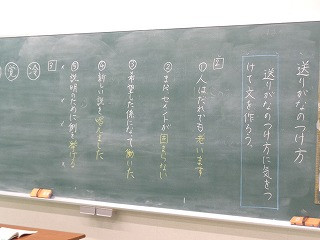 送りがなのつけ方
送りがなのつけ方に気をつ
けて文を作ろう。
1
① 人はだれでも老います
② まだセメイトが固まらない
③ 希望した係になって働いた
④ 新しい説を唱えました
⑤ 説明のために例を挙げる
2
冷